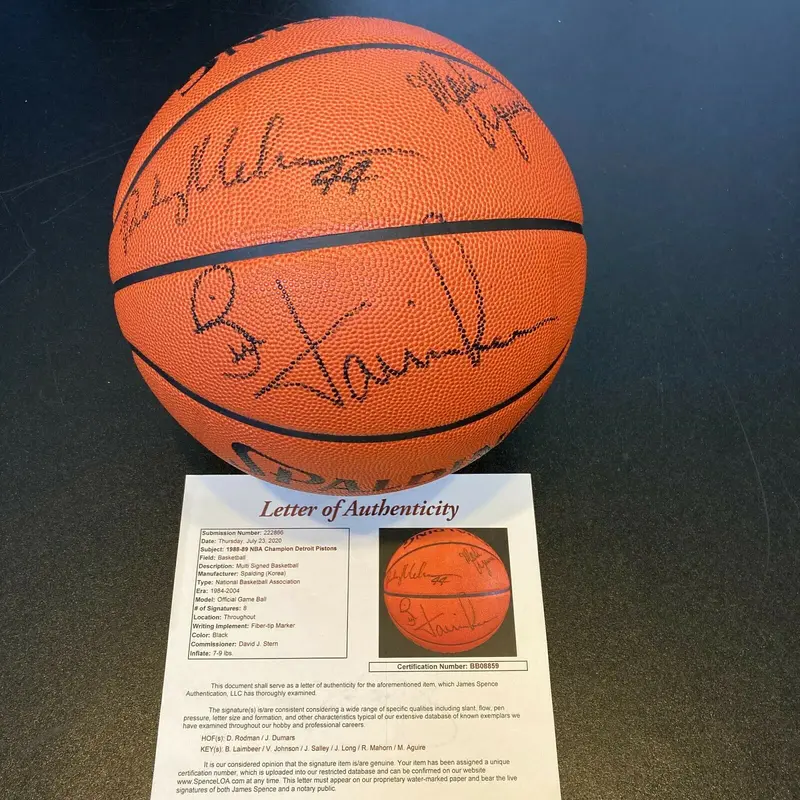 Mark Aguirre
Rick Mahorn 44
Bill Laimbeer
SPALDING
Letter of Authenticity
Submission Number: 222866
Date: Thursday, July 23, 2020
Subject: 1988-89 NBA Champion Detroit Pistons
Field: Basketball
Description: Multi Signed Basketball
Manufacturer: Spalding (Korea)
Type: National Basketball Association
Era: 1984-2004
Model: Official Game Ball
# of Signatures: 8
Location: Throughout
Writing Implement: Fiber-tip Marker
Color: Black
Commissioner: David J. Stern
Inflate: 7-9 lbs.
Certification Number: BB08859
This document shall serve as a letter of authenticity for the aforementioned item, which James Spence
Authentication, LLC has thoroughly examined.
The signature(s) is/are consistent considering a wide range of specific qualities including slant, flow, pen
pressure, letter size and formation, and other characteristics typical of our extensive database of known exemplars we
have examined throughout our hobby and professional careers.
HOF(s): D. Rodman / J. Dumars
KEY(s): B. Laimbeer / V. Johnson / J. Salley / J. Long / R. Mahorn / M. Aguire
It is our considered opinion that the signature item is/are genuine. Your item has been assigned a unique
certification number, which is uploaded into our restricted database and can be confirmed on our website
www.SpenceLOA.com at any time. This letter must appear on our proprietary water-marked paper and bear the live
signatures of both James Spence and a notary public.